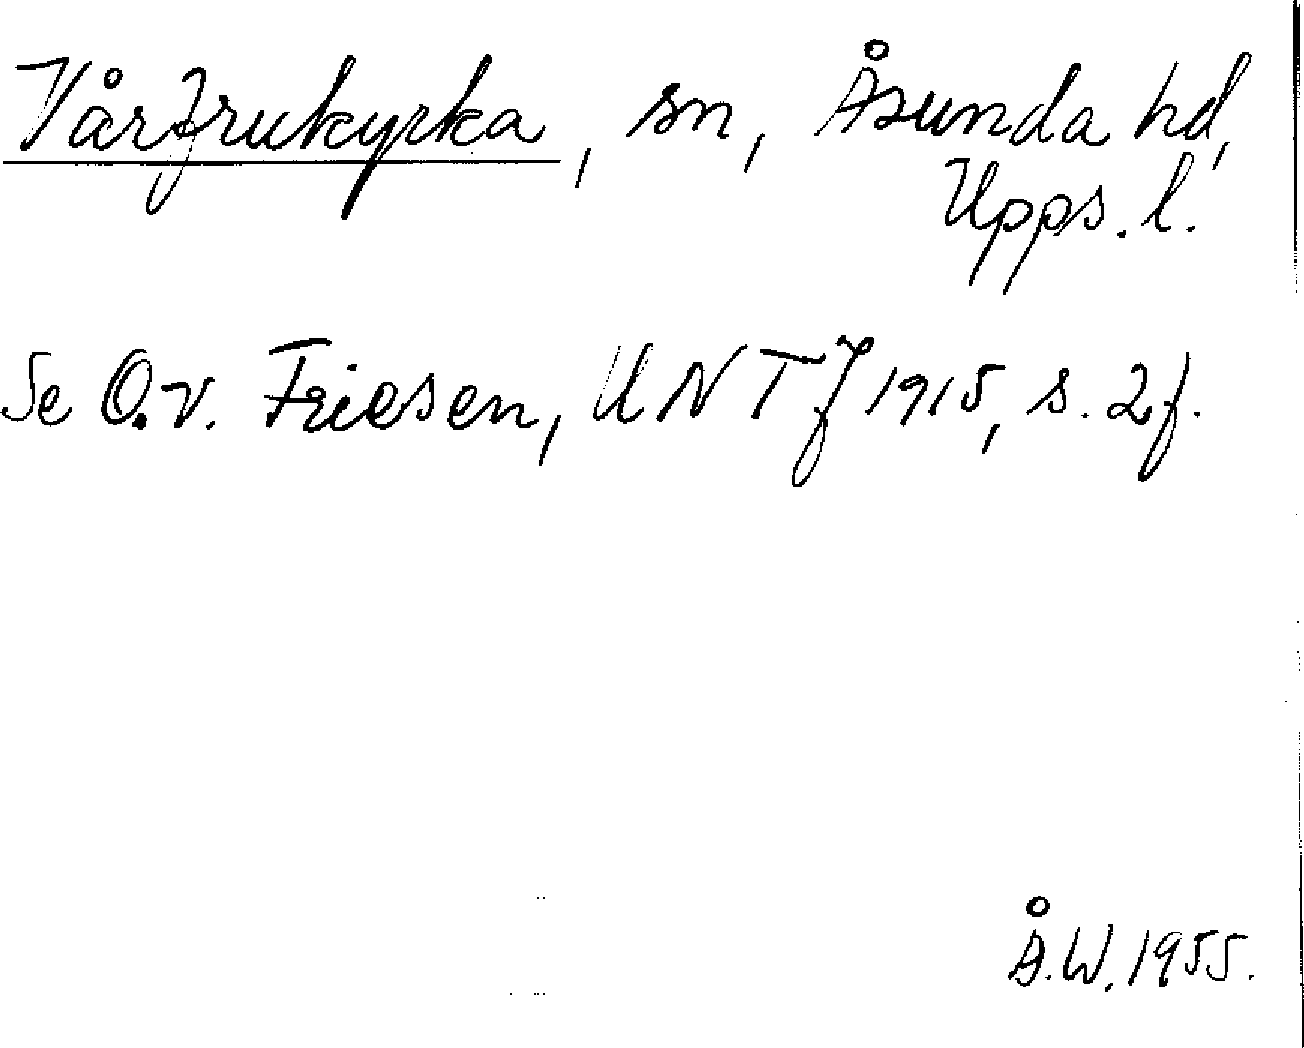 Vårfrukyrka, sn, Åsunda hd,
Upps. l.
Se O. v. Friesen, UNT J 1915, s. 2 f.
Å. W. 1955.